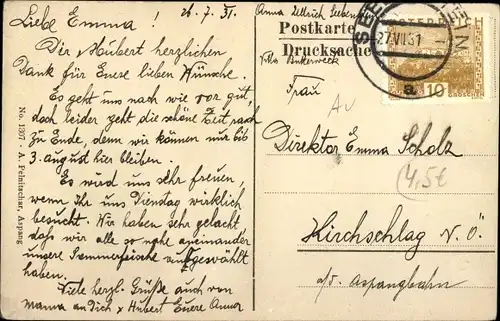 Liebe Emma! 26.7.31.
Dir Hubert herzlichen
Dank für Euere lieben Wünsche.
Es geht uns nach wie vor gut,
doch leider geht die schöne Zeit rasch
zu Ende, denn wir können nur bis
3. august hier bleiben.
Es wird uns sehr freuen,
wenn Ihr uns Dienstag wirklich
besucht. Wir haben sehr gelacht
daß wir alle so nahe aneinander
unsere Sommerfrische aufgewählt
haben.
Viele herzl. Grüße auch von
Mama an Dich & Hubert Euere Anna
No. 1307 - A. Felnitschar, Aspang
Anna
Postkarte
Drucksache
27.VII.31
a
10
GROSCHEN
Frau
Direktor Emma Scholz
4,5€
Kirchschlag N.Ö.
a/d. Aspangbahn